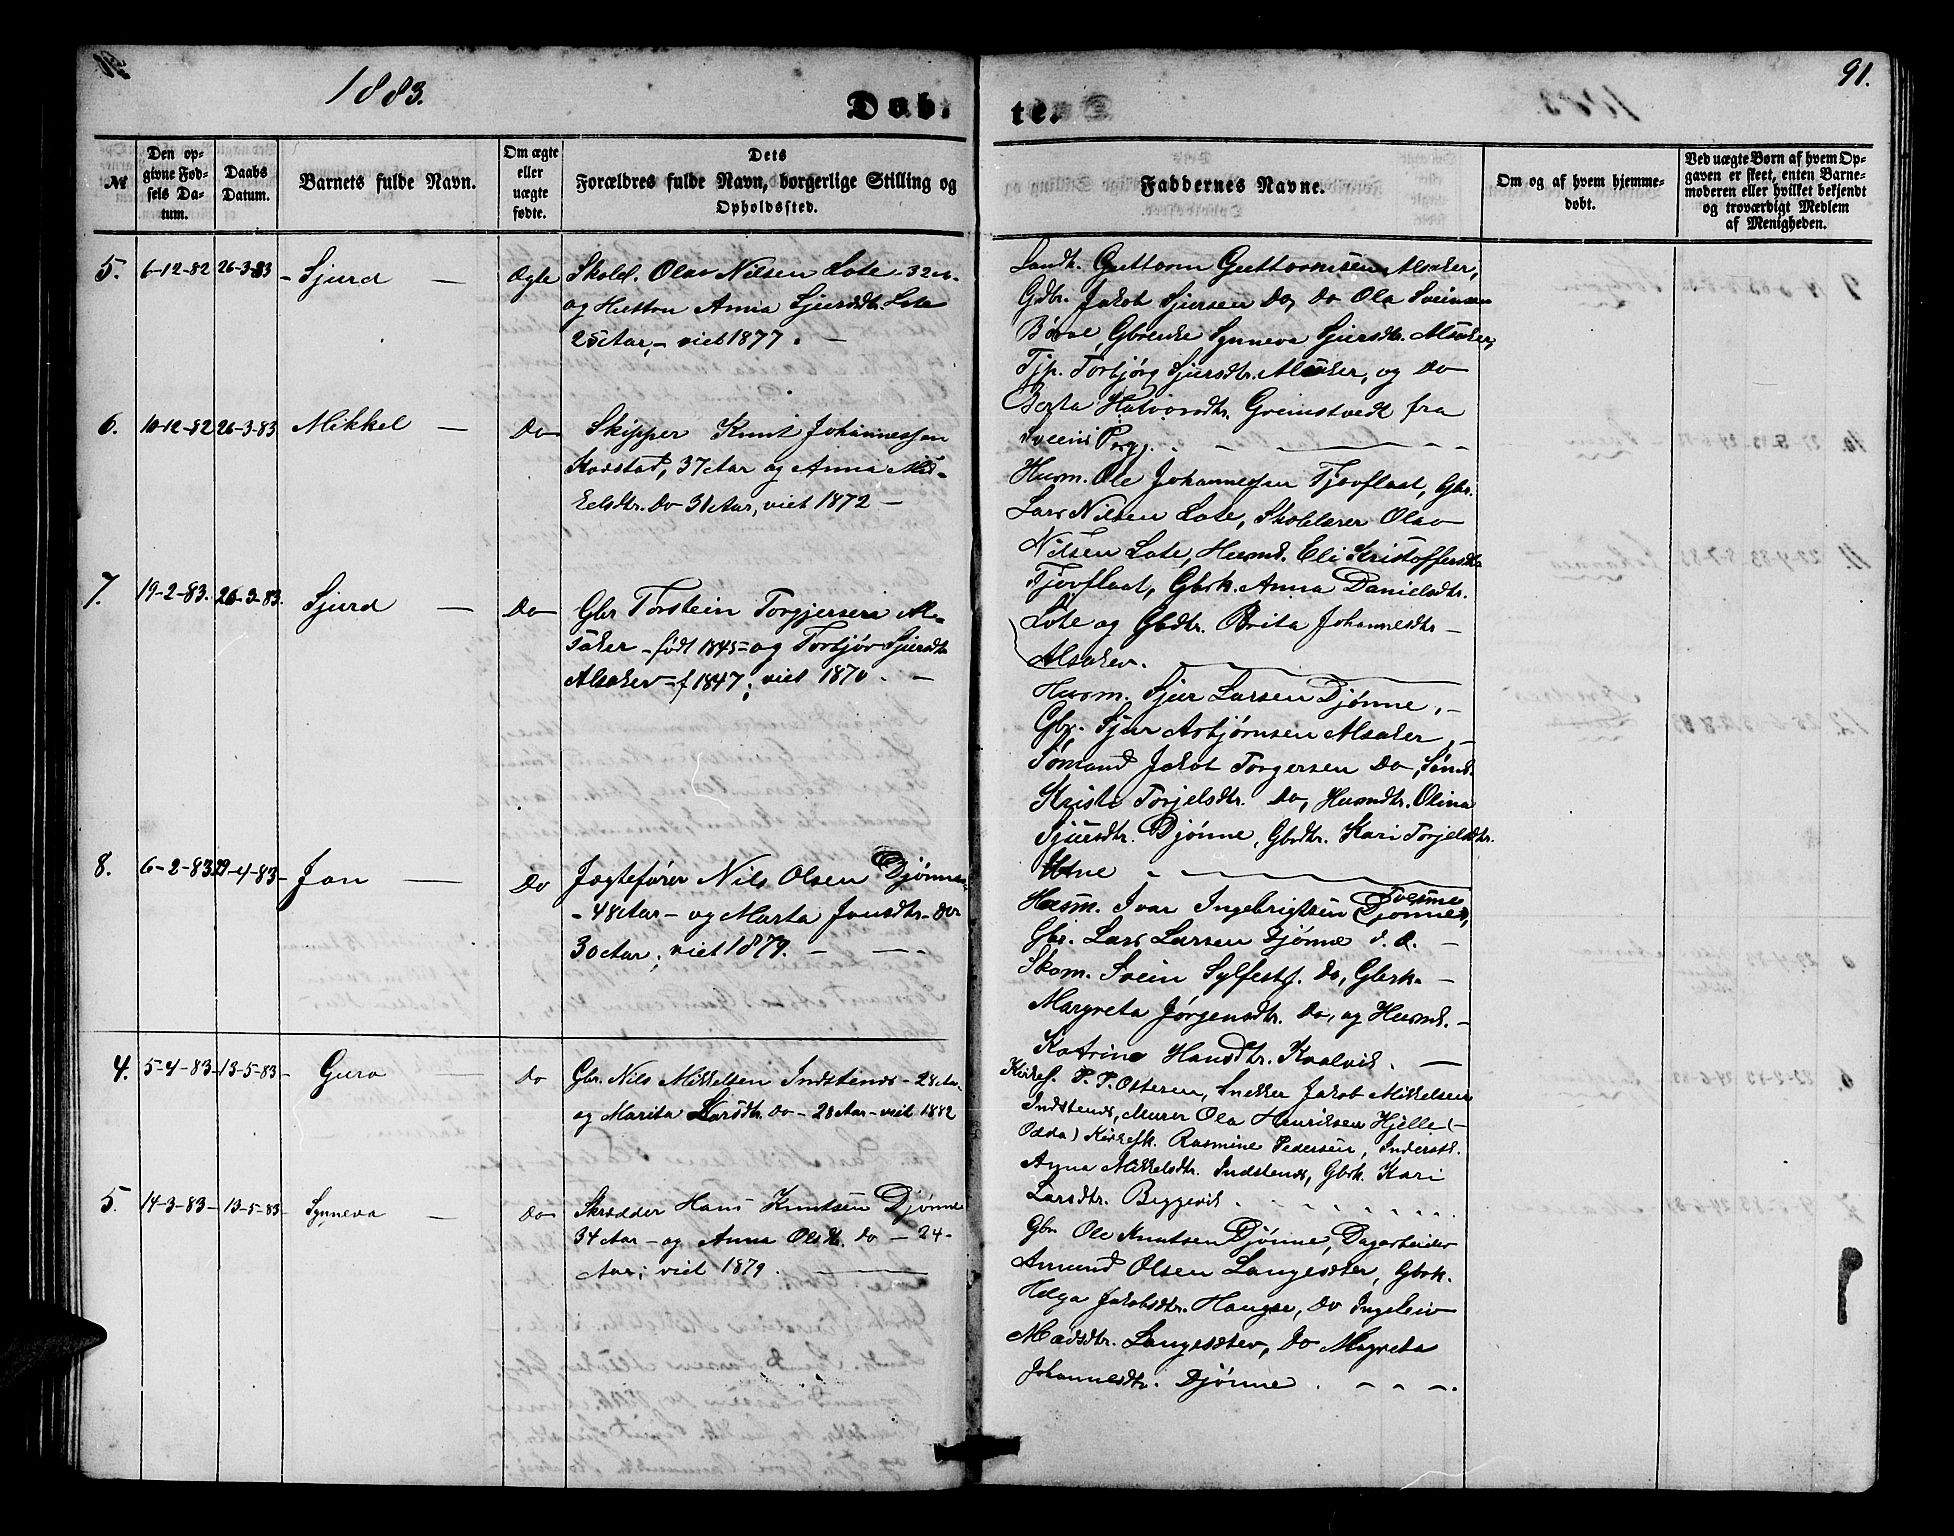 1883.
Døb.
te.
91.
№
Den op-
givne Fød-
sels Da-
tum.
Daabs
Datum.
Barnets fulde Navn.
Om ægte
eller
uægte
fødte.
Dets
Forældres fulde Navn, borgerlige Stilling og
Opholdssted.
Faddernes Navne.
Om og af hvem hjemme-
døbt.
Ved uægte Børn af hvem Op-
gaven er skeet, enten Barne-
moderen eller hvilket bekjendt
og troværdigt Medlem
af Menigheden.
5. 6-12-82 26-3-83 - Sjurd — Ægte
Skolel. Olav Nilsen Lote - 32 A-
og Hustru Anna Sjursdtr. Lote
25 Aar, - viet 1877. —
Landh. Guttorm Guttormsen Alsaker,
Gdbr. Jakob Sjursen Do, Do Ola Sveinsen
Børve, Gbrenke Synneva Sjursdtr. Alsaker,
Tjp. Torbjørg Sjursdtr. Alsaker, og Do
Berta Halvorsdtr. Greinstvedt fra
6. 10-12-82 26-3-83 Mikkel — Do
Skipper Knut Johannessen
37 Aar og Anna Mik-
kelsdtr. Do 31 Aar, viet 1872 —
Husm. Ole Johannessen Tjoflaat, Gbr.
Lars Nilsen Lote, Skolelærer Olav
Nilsen Lote, Husmk. Eli Kristoffersdtr
Tjoflaat, Gbrk. Anna Danielsdtr.
Lote og Gbdtr. Brita Johannesdtr -
Alsaker.
7. 19-2-83. 26-3-83. Sjurd — Do
Gbr Torstein Torgjersen Al-
saker - født 1845 - og Torbjør Sjursdtr
Alsaker - f 1847; viet 1870. —
Husm. Sjur Larsen Djønne, -
Gbr. Sjur Asbjørnsen Alsaker, -
Sømand Jakob Torgersen Do, Sømk.
Kristi Torjelsdtr. Do, Husmdtr. Olina
Sjursdtr. Djønne, Gbdtr. Kari Torjelsdtr.
Utne
8. 6-2-83 29-4-83 - Jon — Do
Jægtefører Nils Olsen Djønne
- 48 Aar - og Marta Jonsdtr - Do
30 Aar; viet 1879. — —
Husm. Ivar Ingebrigtsen Tvesme
Djønne,
Gbr. Lars Larsen Djønne d. æ. -
Skom. Svein Sylfestsf. Do, Gbrk. -
Margreta Jørgensdtr. Do, og Husmk. -
Katrina Hansdtr. Kvalvik. —
4. 5-4-83 - 13-5-83 - Guro — Do
Gbr. Nils Mikkelsen Indstenes - 28 Aar.
og Marita Larsdtr. Do - 28 Aar - viet 1882
Kirkes. P. P. Ostersen, Snekker Jakob Mikkelsen
Indstenes, Murer Ola Henriksen Hjelle (-
Odda) Kirkesk. Rasmine Pedersen, Inderstk.
Anna Mikkelsdtr. Indstenes, Gbrk. Kari
Larsdtr. Beggevik.
5. 14-3-83 - 13-5-83 - Synneva — Do
Skrædder Hans Knutsen Djønne
34 Aar - og Anna Olsdtr. Do - 24 -
Aar; viet 1879. —
Gbr Ole Knutsen Djønne, Dagarbeider
Amund Olsen Langesæter, Gbrk.
Helga Jakobsdtr. Haugse, Do Ingeleiv
Madsdtr. Langesæter, Do Magreta
Johannesdtr. Djønne.